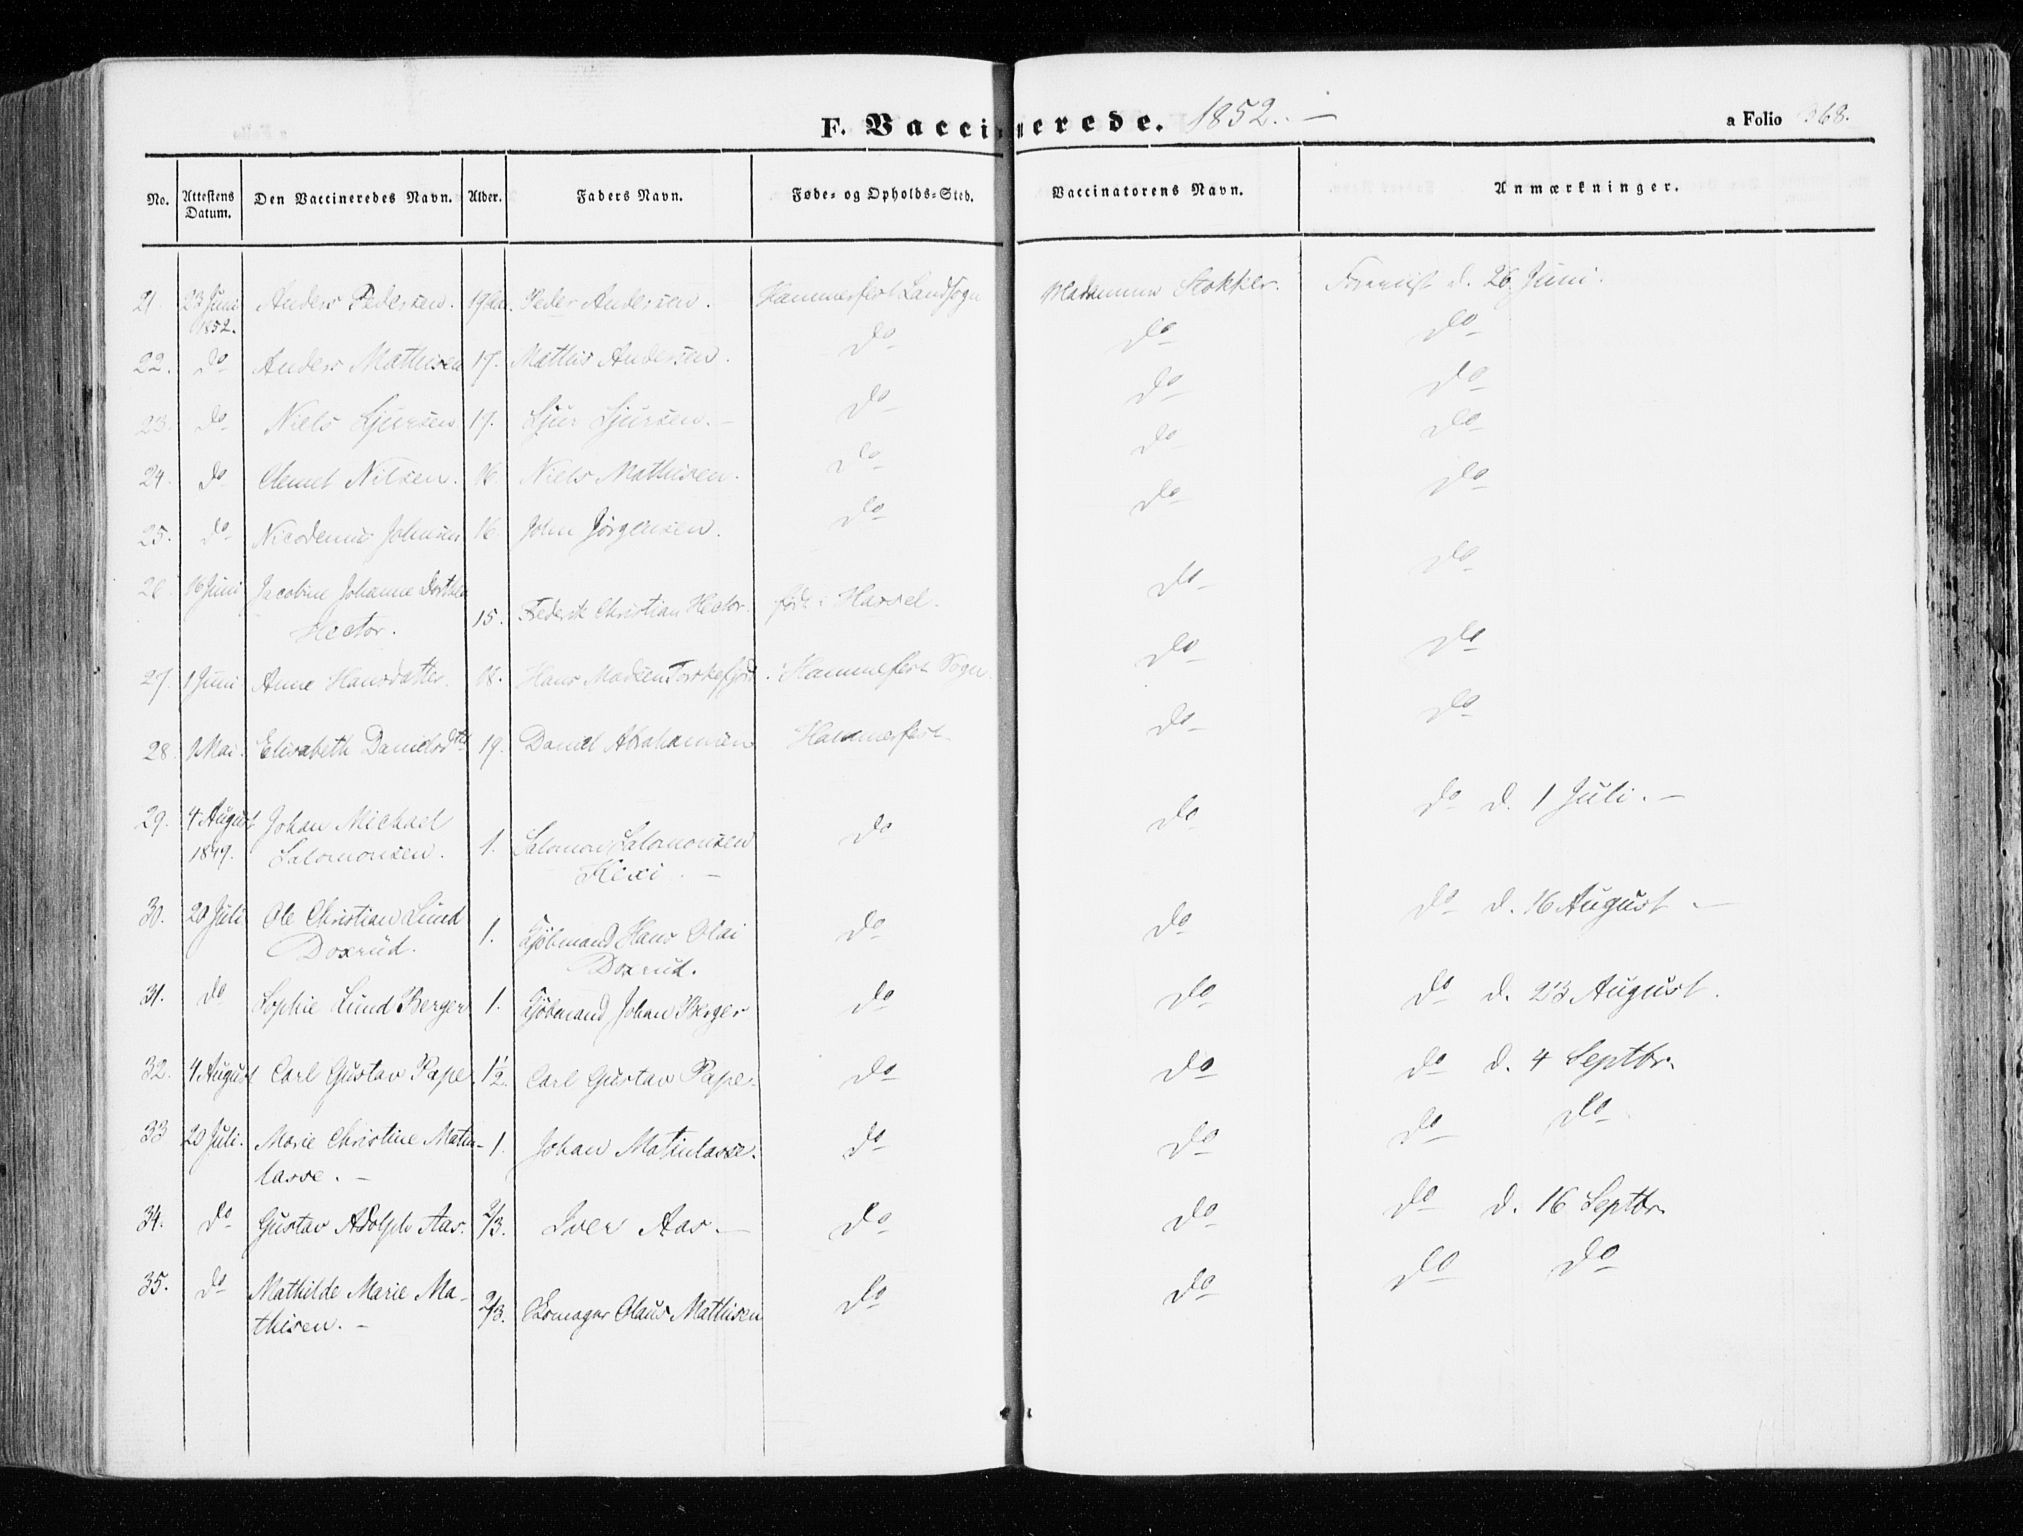 F. Vaccinerede. 1852. —
a Folio 368.
No. Attestens Datum. Den Vaccineredes Navn. Alder. Faders Navn. Føde- og Opholds-Sted. Vaccinatorens Navn. Anmærkninger.
21. 23 Juni 1852. Anders Pedersen. 19 Peder Andersen. Hammerfest Landsogn Stokker. d. 26 Juni.
22. do Anders Mathisen 17. Mathis Andersen. do do do
23. do Niels Sjursen 17. Sjur Sjursen. — do do do
24. do Clemet Nilsen. 16. Niels Mathisen. do do do
25. do Nicodemus Johnsen 16. John Jørgensen. do do do
26. 16 Juni Jacobine Johanne Dorthea
Hector. 15. Frederik Christian Hector. født i Hassel. do do
27. 1 Juni Anne Hansdatter. 18. Hans Madsen Torskefjord i Hammerfest Sogn. do do
28. Mai. Elisabeth Danielsdtr 19. Daniel Abrahamsen Hammerfest do do
29. 4 August 1849. Johan Michael
Salomonsen. 1. Salomon Salomonsen
Kexi. — do do do d. 1 Juli. —
30. 20 Juli Ole Christian Lund
Doxrud. 1. Kjøbmand Hans Olai
Doxrud. do do do d. 16 August —
31. do Sophie Lund Berger 1. Kjøbmand Johan Berger do do do d. 23 August.
32. 4 August Carl Gustav Pape. 1½. Carl Gustav Pape. do do do d. 4 Septbr.
33 20 Juli. Marie Christine Matin-
lasse. — 1. Johan Matinlasse. do do do do
34. do Gustav Adolph Aas. 2/3. Iver Aas. — do do do d. 16 Septbr.
35. do Mathilde Marie Ma-
thisen. — 2/3. Skomager Olaus Mathisen do do do do